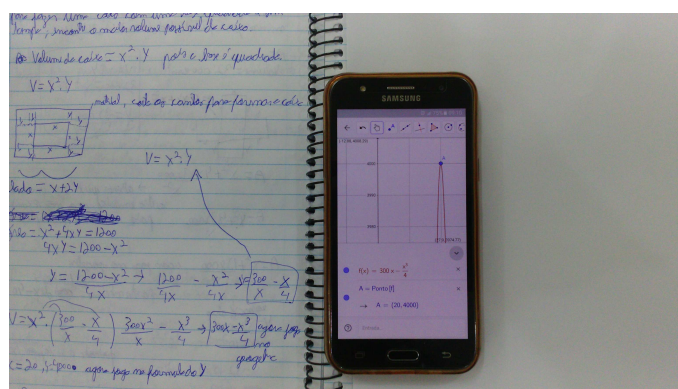 para fazer uma caixa com uma base quadrada e sem
tampa, encontre o maior volume possível da caixa.
Volume da caixa = x². y pois a base é quadrada
V = x². y
material, corte os cantos para formar a caixa
V = x². y
lados = x + 2y
= x² + 4xy = 1200
4xy = 1200 - x²
y = 1200 - x² / 4x → 1200 / 4x - x² / 4x → y = 300 / x - x / 4
V = x². (300 / x - x / 4) 300x² / x - x³ / 4 → 300x - x³ / 4 agora jogo
no
geogebra
x = 20, y = 4000 agora jogo na formula do y
SAMSUNG
4000
f(x) = 300 x - x³ / 4
A = Ponto[f]
→ A = (20, 4000)
Entrada...